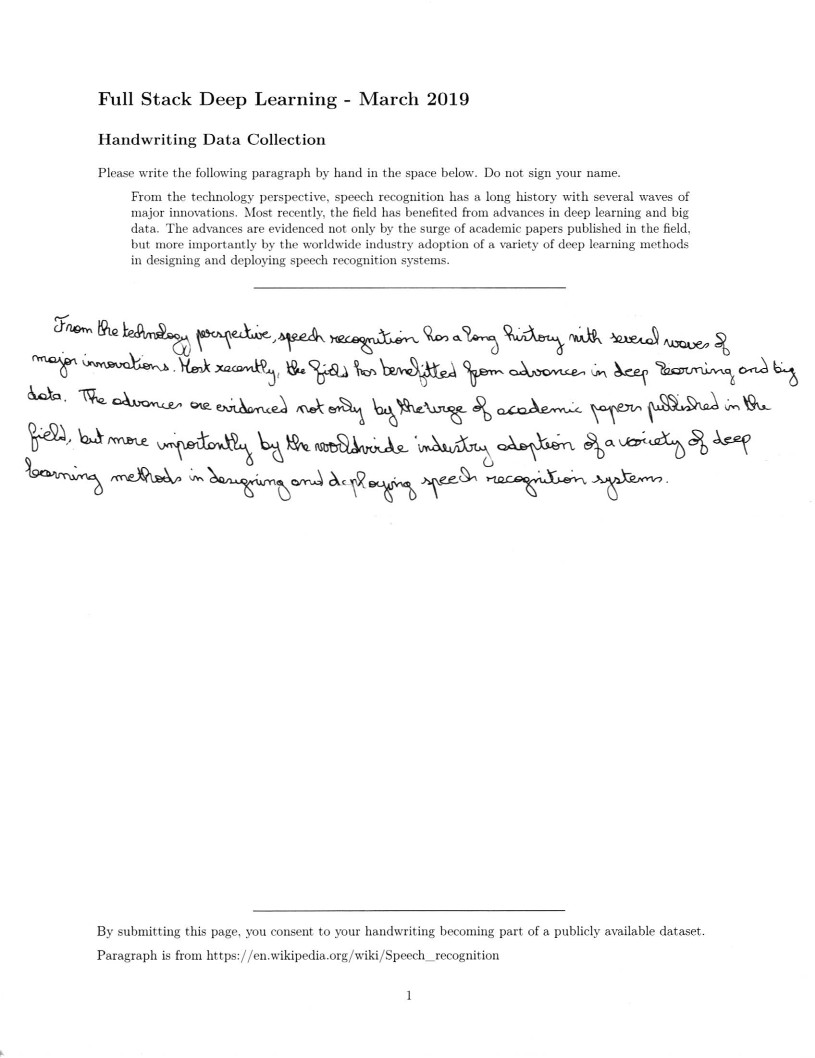 Full Stack Deep Learning - March 2019
Handwriting Data Collection
Please write the following paragraph by hand in the space below. Do not sign your name.
From the technology perspective, speech recognition has a long history with several waves of
major innovations. Most recently, the field has benefited from advances in deep learning and big
data. The advances are evidenced not only by the surge of academic papers published in the field,
but more importantly by the worldwide industry adoption of a variety of deep learning methods
in designing and deploying speech recognition systems.
From the technology perspective, speech recognition has a long history with several waves of
major innovations. Most recently, the field has benefitted from advances in deep learning and big
data. The advances are evidenced not only by the surge of academic papers published in the
field, but more importantly by the worldwide industry adoption of a variety of deep
learning methods in designing and deploying speech recognition systems.
By submitting this page, you consent to your handwriting becoming part of a publicly available dataset.
Paragraph is from https://en.wikipedia.org/wiki/Speech_recognition
1